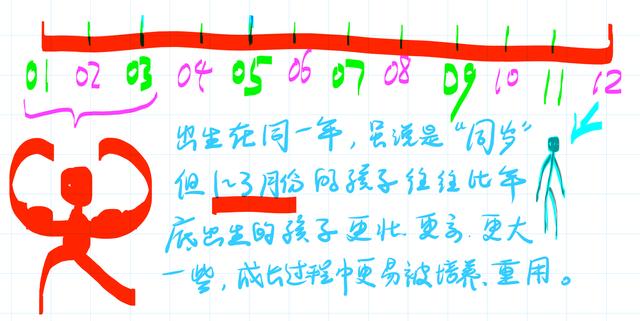 01 02 03 04 05 06 07 08 09 10 11 12
出生在同一年，虽说是“同岁”
但1~3月份的孩子往往比年
底出生的孩子更壮、更高、更大
一些，成长过程中更易被培养、重用。